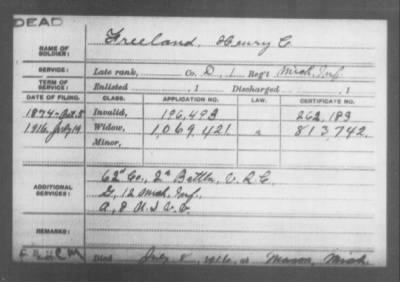 DEAD
NAME OF SOLDIER: Freeland, Henry C.
SERVICE: Late rank, Co. D, 1 Reg't Mich. Inf.
TERM OF SERVICE: Enlisted , 1 Discharged , 1
DATE OF FILING. CLASS. APPLICATION NO. LAW. CERTIFICATE NO.
1874 Oct. 5 Invalid, 196,493 262,183
1916 July 19 Widow, 1,069,421 813,742.
Minor,
ADDITIONAL SERVICES:
62d Co., 2d Battln, V.R.C.
G, 12 Mich. Inf.,
A, 8 U.S.V.V.
REMARKS:
Died July 8, 1916, at Mason, Mich.